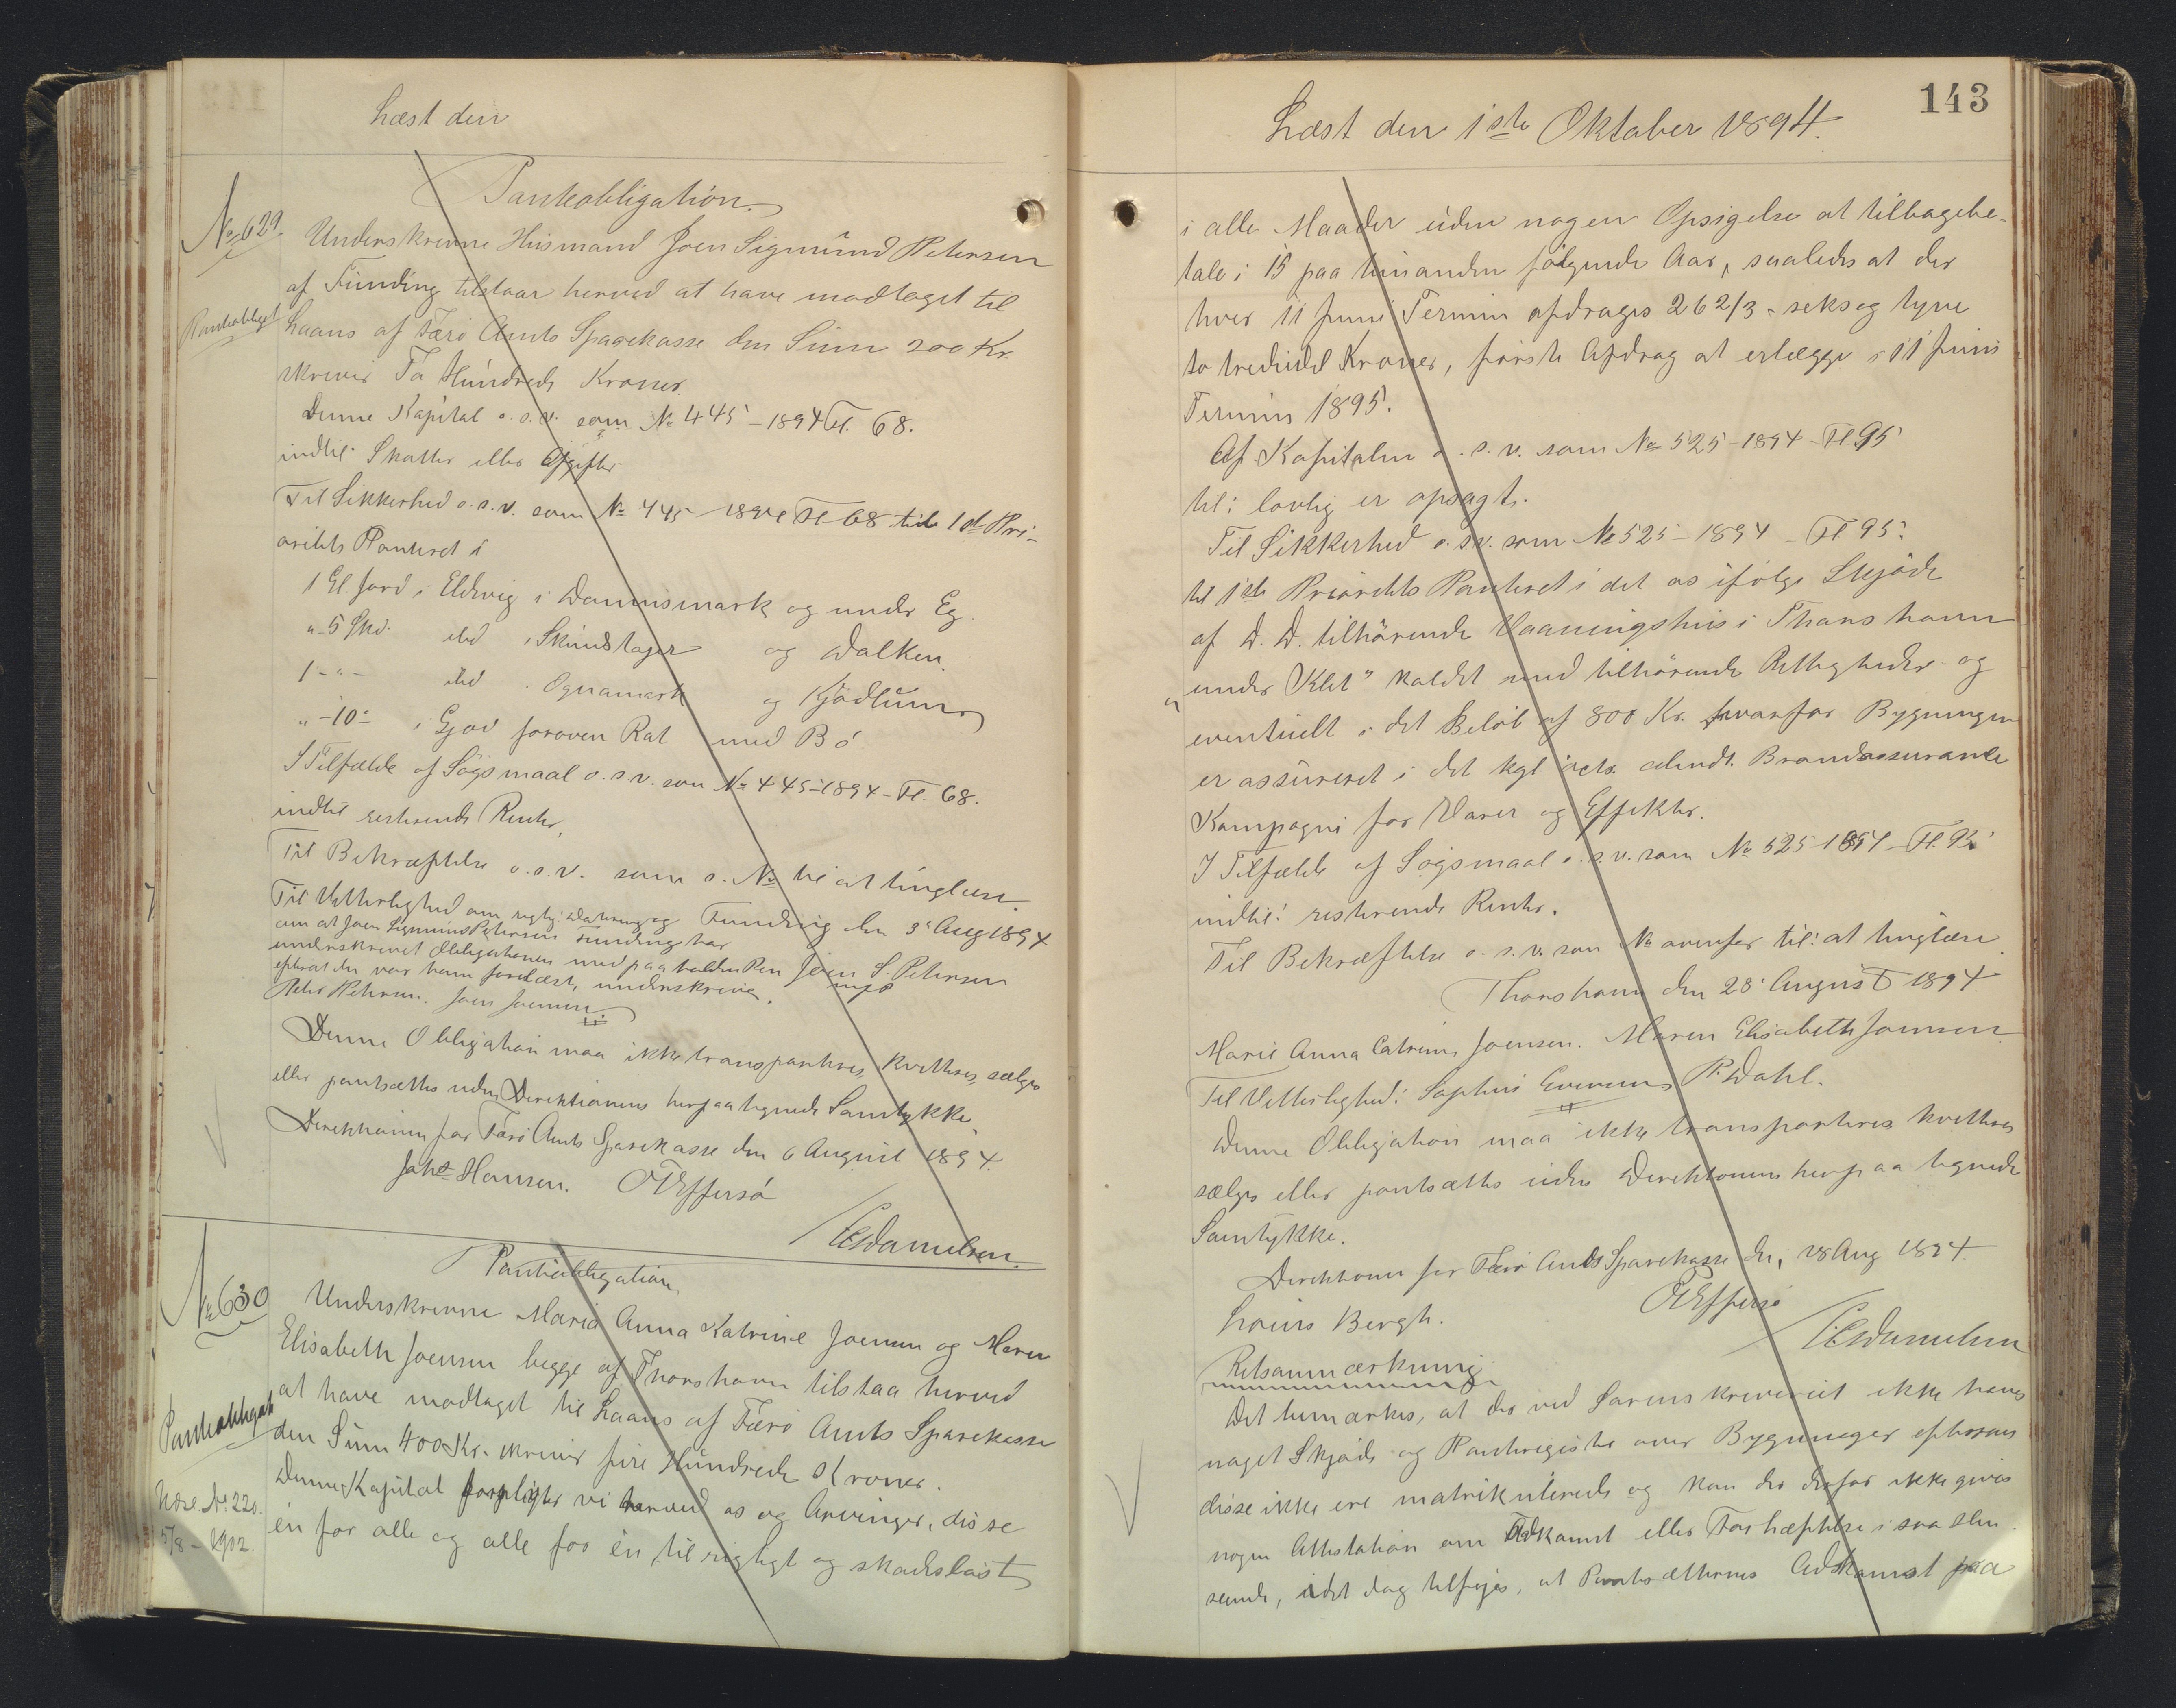 Læst den
Panteobligation.
No 629.
Underskrevne Huusmand Joen Sigmund Petersen
af Funding tilstaar herved at have modtaget til
Panteobligat
Laans af Færö Amts Sparekasse den Sum 200 Kr.
skriver To Hundrede Kroner.
Denne Kapital o.s.v. som No 445 – 1894 Fl. 68.
indtil Skatter eller Afgifter
Til Sikkerhed o.s.v. som No 445 – 1894 Fl 68 til 1ste Pri-
oritets Panteret i
1 Gl Jord i Eldevig i Dammsmark og under Eg.
" - 5 Skd. ibd i Skindstager og Dalken.
1 - " - ibd. Ognamark og Kjödlum
" - 10 - i Gjov foroven Rat med Bö
I Tilfælde af Sögsmaal o.s.v. som No 445–1894–Fl. 68.
indtil resterende Renter.
Til Bekræftelse o.s.v. som s. No til at tinglæse.
Funding den 3' Aug 1894
Til Vitterlighed om rigtig Datering og
om at Joen Sigmund Petersen Funding har
underskrevet Obligationen med paaholden Pen
Joen S. Petersen
mfP
efterat den var ham forelæst, underskriver.
Peter Petersen. Joen Joensen.
Denne Obligation maa ikke transporteres, kvitteres, sælges
eller pantsættes uden Direktionens herpaa tegnede Samtykke.
Direktionen for Færö Amts Sparekasse den 6 August 1894.
Johs Hansen. OEffersö
No 630
Panteobligation
Underskrevne Maria Anna Katrine Joensen og Maren
Elisabeth Joensen begge af Thorshavn tilstaa herved
at have modtaget til Laans af Færö Amts Sparekasse
Panteobligat
den Sum 400 Kr. skriver fire Hundrede Kroner.
Denne Kapital forpligter vi herved os og Arvinger, disse
No 220.
5/8 – 1902.
én for alle og alle for én, til rigtigt og skadeslöst
143
Læst den 1ste Oktober 1894.
i alle Maader uden nogen Opsigelse at tilbagebe-
tale i 15 paa hinanden fölgende Aar, saaledes at der
hver 11 Juni Termin afdrages 26 2/3 – seks og tyve
to trediedel Kroner, förste Afdrag at erlægge i 11 Juni
Termin 1895.
Af Kapitalen o.s.v. som No 525 – 1894 – Fl. 95
til: lovlig er opsagt.
Til Sikkerhed o.s.v. som No 525 – 1894 – Fl 95:
til 1ste Prioritets Panteret i det os ifölge Skjöde
af D. D. tilhörende Vaaningshus i Thorshavn
"under Klet" kaldet med tilhörende Rettigheder og
eventuelt i det Belöb af 800 Kr. hvorfor Bygningen
er assureret i det kgl. octr. almdl. Brandassurance
Kompagni for Varer og Effekter.
I Tilfælde af Sögsmaal o.s.v. som No 525–1894–Fl. 95
indtil: resterende Renter.
Til Bekræftelse o.s.v. som No ovenfor til: at tinglæse.
Thorshavn den 28' August 1894.
Marie Anna Catrine Joensen. Maren Elisabeth Joensen
Til Vitterlighed: Sophus P. Dahl.
Denne Obligation maa ikke transporteres kvitteres
sælges eller pantsættes uden Direktionens herpaa tegnede
Samtykke.
Direktionen for Færö Amts Sparekasse den, 28 Aug 1894.
Louis Bergh. OEffersö
Retsanmærkning
Det bemærkes, at der ved Sorenskriveriet ikke haves
noget Skjöde- og Panteregister over Bygninger eftersom
disse ikke ere matrikulerede og kan der derfor ikke gives
nogen Attestation om Adkomst eller Forhæftelse i saa Hen-
seende, idet dog tilföjes, at Pantsætternes Adkomst paa